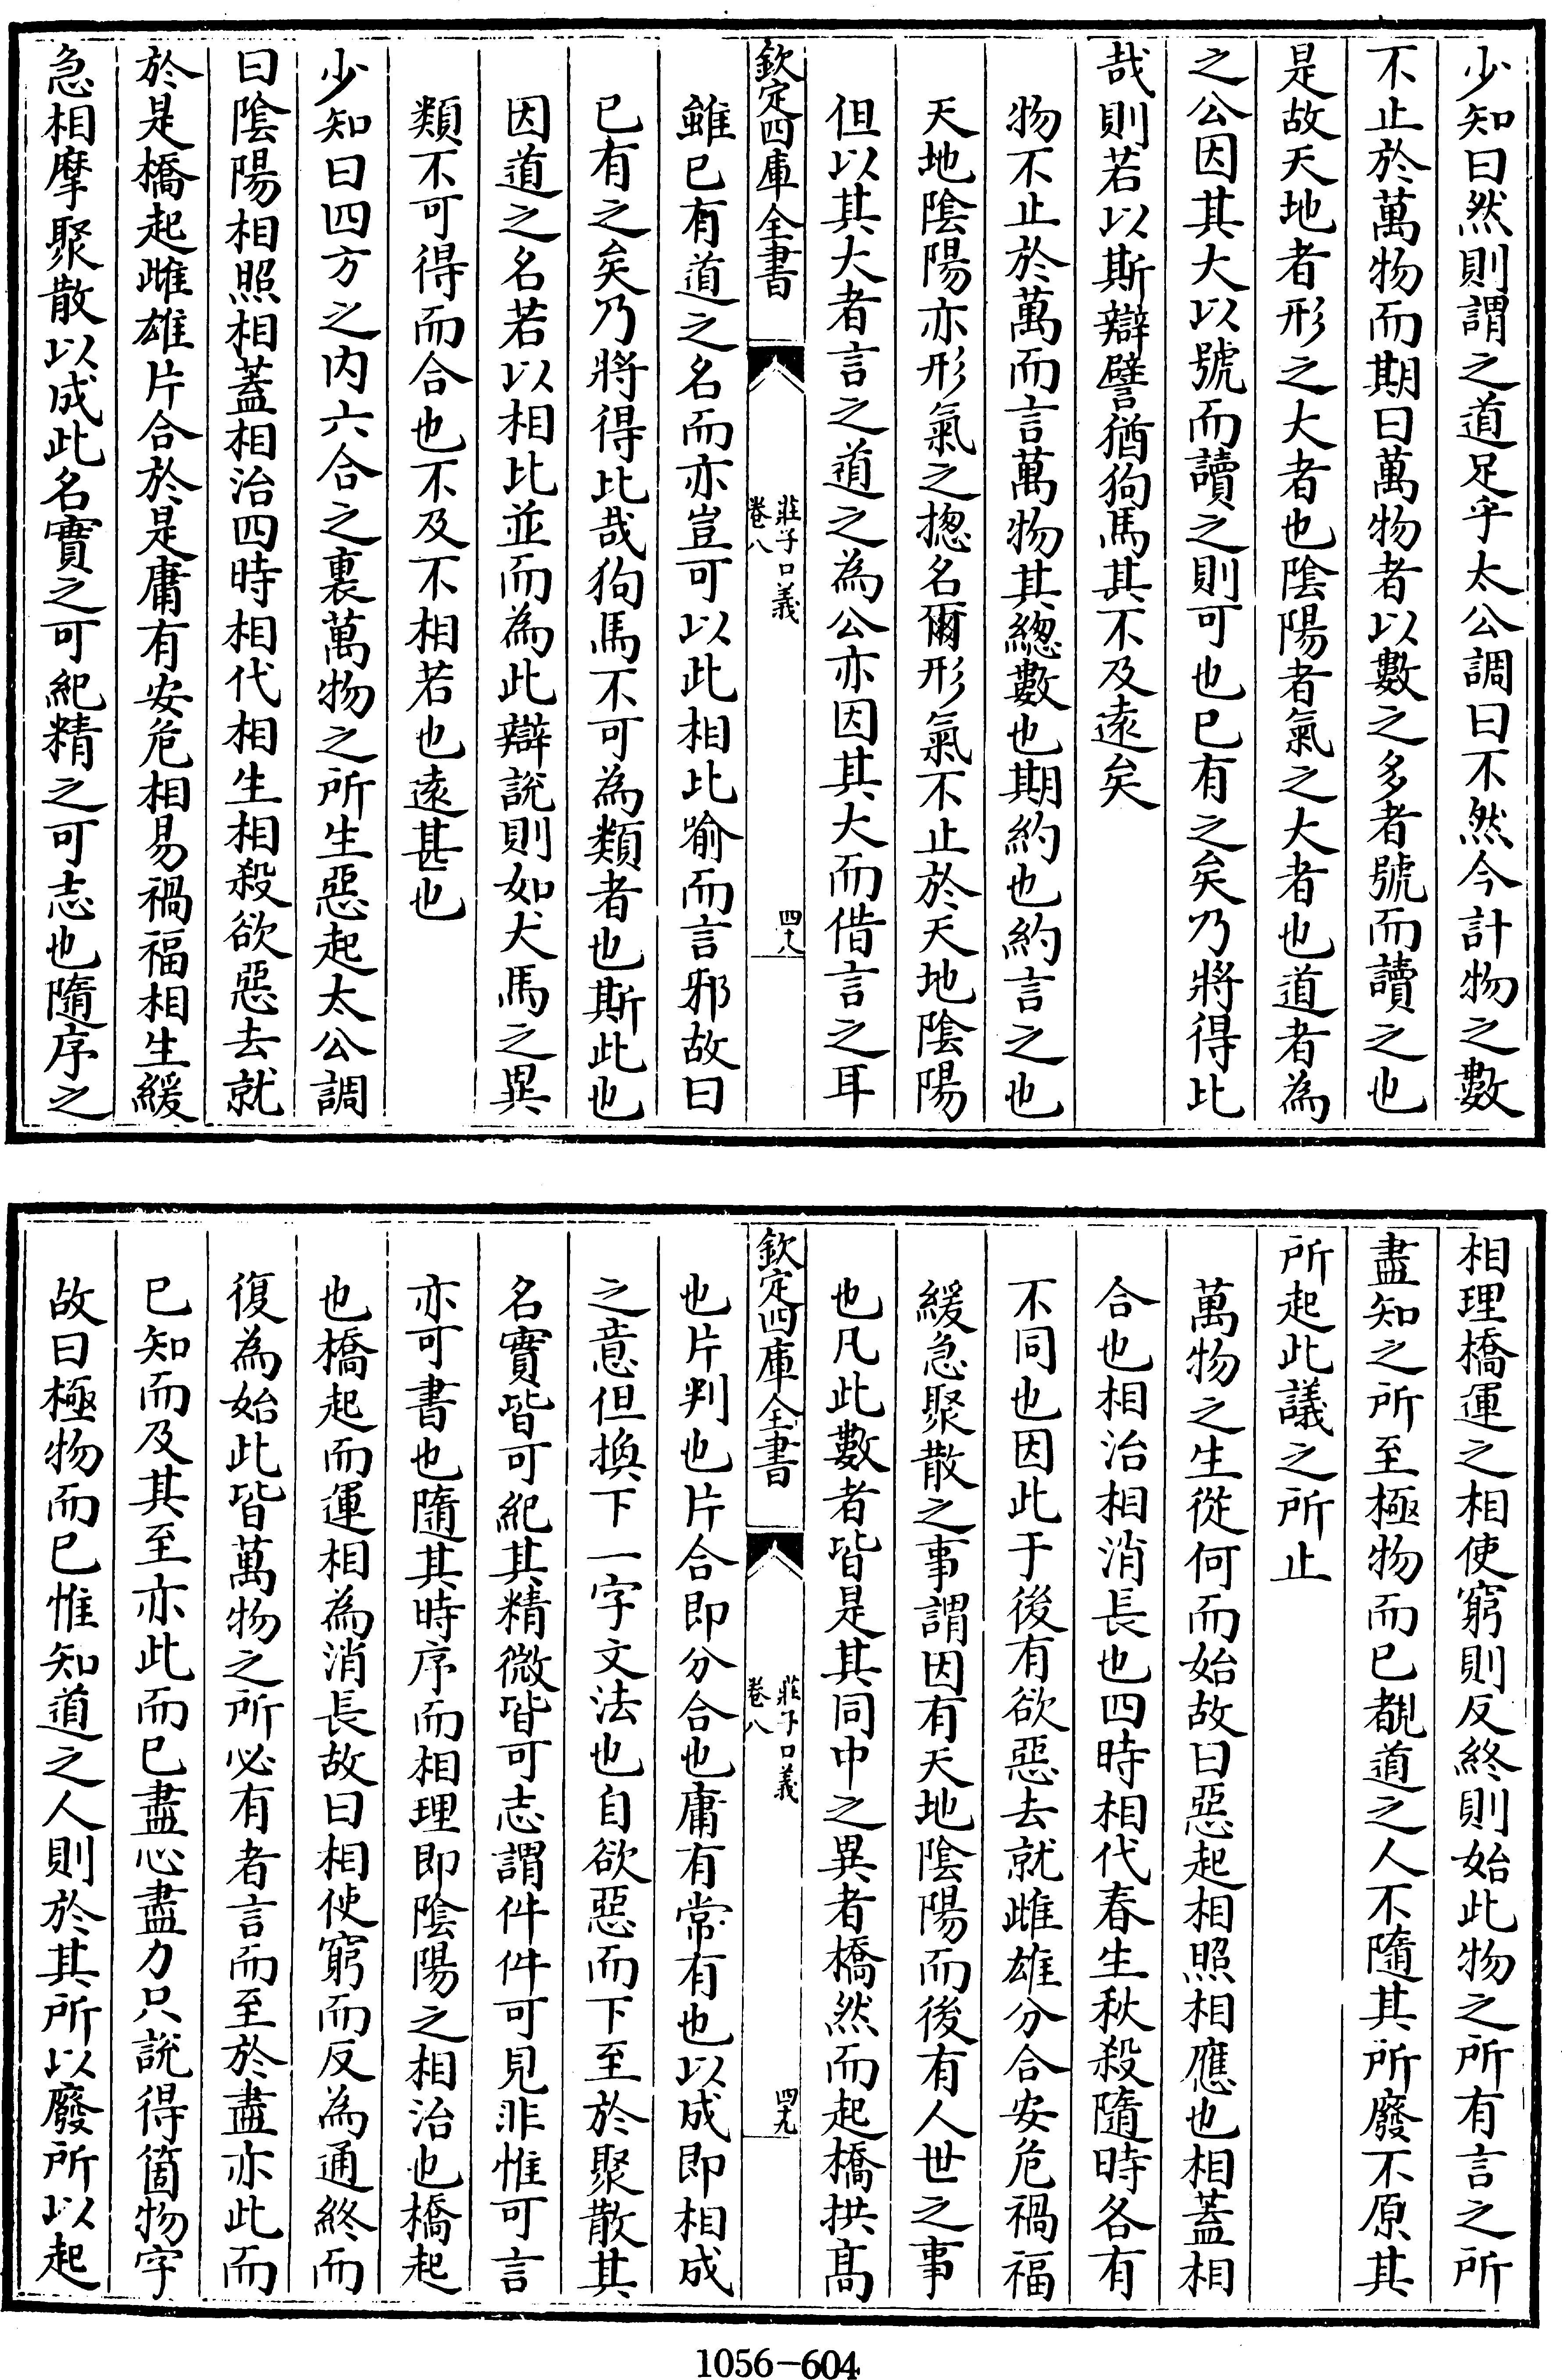 少知曰然則謂之道足乎太公調曰不然今計物之數
不止於萬物而期曰萬物者以數之多者號而讀之也
是故天地者形之大者也陰陽者氣之大者也道者為
之公因其大以號而讀之則可也已有之矣乃將得比
哉則若以斯辯譬猶狗馬其不及遠矣
物不止於萬而言萬物其總數也期約也約言之也
天地陰陽亦形氣之摠名爾形氣不止於天地陰陽
但以其大者言之道之為公亦因其大而借言之耳
欽定四庫全書
莊子口義
卷八
四十八
雖已有道之名而亦豈可以此相比喻而言邪故曰
已有之矣乃將得比哉狗馬不可為類者也斯此也
因道之名若以相比並而為此辯說則如犬馬之異
類不可得而合也不及不相若也遠甚也
少知曰四方之内六合之裏萬物之所生惡起太公調
曰陰陽相照相蓋相治四時相代相生相殺欲惡去就
於是橋起雌雄片合於是庸有安危相易禍福相生緩
急相摩聚散以成此名實之可紀精之可志也隨序之
相理橋運之相使窮則反終則始此物之所有言之所
盡知之所至極物而已覩道之人不隨其所廢不原其
所起此議之所止
萬物之生從何而始故曰惡起相照相應也相蓋相
合也相治相消長也四時相代春生秋殺隨時各有
不同也因此于後有欲惡去就雌雄分合安危禍福
緩急聚散之事謂因有天地陰陽而後有人世之事
也凡此數者皆是其同中之異者橋然而起橋拱高
欽定四庫全書
莊子口義
卷八
四十九
也片判也片合即分合也庸有常有也以成即相成
之意但換下一字文法也自欲惡而下至於聚散其
名實皆可紀其精微皆可志謂件件可見非惟可言
亦可書也隨其時序而相理即陰陽之相治也橋起
也橋起而運相為消長故曰相使窮而反為通終而
復為始此皆萬物之所必有者言而至於盡亦此而
已知而及其至亦此而已盡心盡力只說得箇物字
故曰極物而已惟知道之人則於其所以廢所以起
1056-604